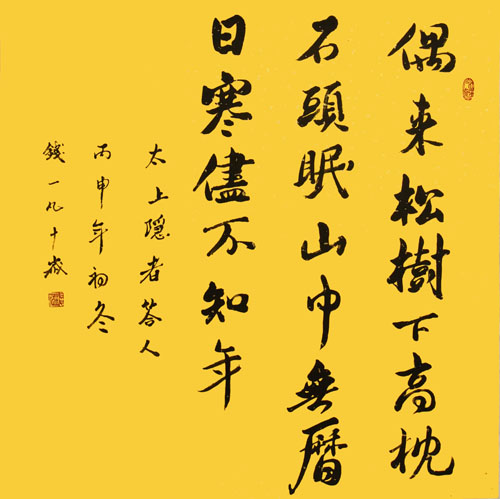 偶来松樹下高枕
石頭眠山中無曆
日寒儘不知年
太上隱者答人
丙申年初冬
錢一凡十歲